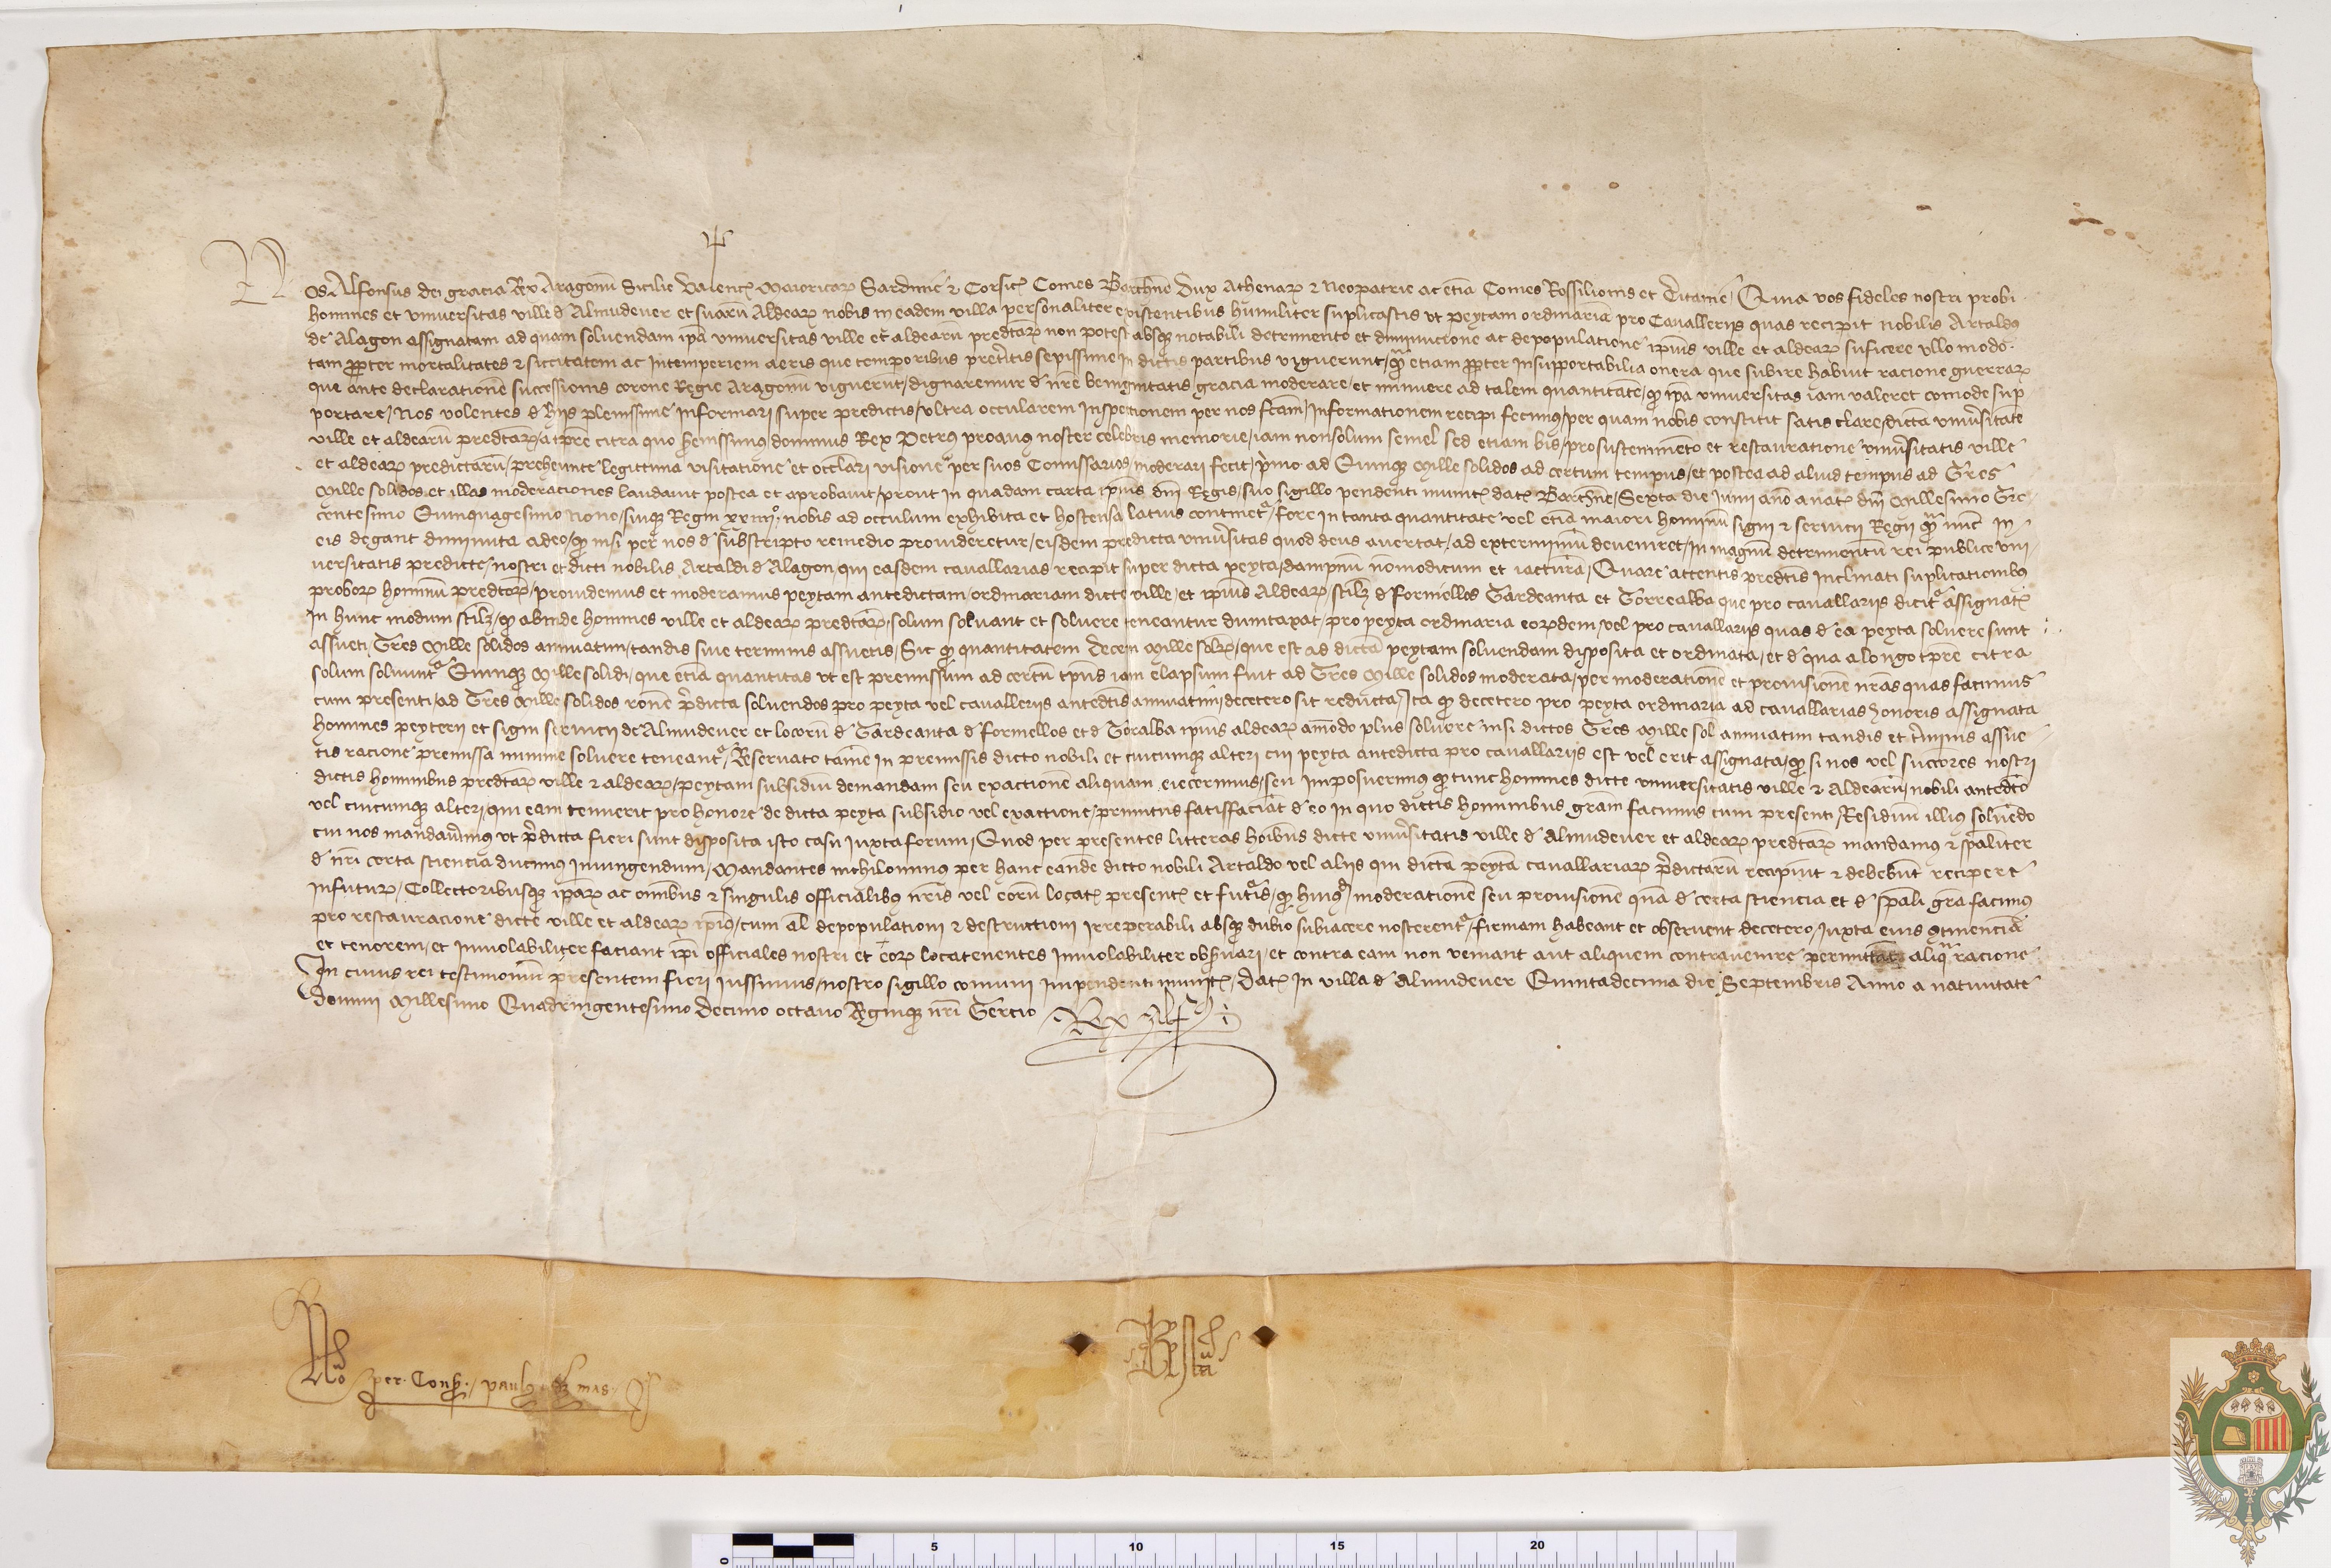 Nos Alfonsus dei gracia Rex Aragonū Sicilie Valencȩ Maioricarꝝ Sardinie & Corsicȩ Comes Barchn̄e Dux Athenarꝝ & Neopatrie ac etiā Comes Rossilionis et Ceritanie / Quia vos fideles nostri probi
homines et vniuersitas ville d' Almudeuer et suarū Aldearꝝ nobis in eadem villa personaliter existentibus humiliter suplicastis vt peytam ordinariā pro Cavallerijs quas recipit Nobilis Artaldꝰ
de Alagon assignatam ad quam soluendam ip̄a vniuersitas ville et aldearū predc̄arꝝ non potest absqꝫ notabili detrimento et diminucione ac depopulatione ip̄ius ville et aldearꝝ suficere vllo modo
tam ꝓpter mortalitates & siccitatem ac intemperiem aeris que temporibus preteritis sepissime in dictis partibus viguerunt / qͣm etiam ꝓpter insupportabilia onera que subire habuit racione guerrarꝝ
que ante declarationē successionis corone Regie Aragonū viguerūt / dignaremur d' nr̄e benignitatis gracia moderare / et minuere ad talem quantitatē / qꝫ ip̄a vniuersitas iam valeret comode sup
portare / Nos volentes d' hijs plenissime informari super predictis / vltra occularem inspectionem per nos fc̄am / informationem recipi fecimꝰ / per quam nobis constitit satis clare / dictā vniūsitatē
ville et aldearū predc̄arꝝ / a tp̄re citra quo serenissimꝰ dominus Rex Petrꝰ proauꝰ noster celebris memorie / iam non solum semel sed etiam bis / pro sustenimēto et restauratione vniūsitatis ville
et aldearꝝ predictarū / preheunte legittima visitatione et occl̄ari visione per suos Comissarios / moderari fecit / p̄mo ad Quinqꝫ Mille solidos ad certum tempus / et postea ad aliud tempus ad Tres
Mille solidos et illas moderaciones laudauit postea et aprobauit / prout in quadam carta ip̄ius dn̄i Regis / suo sigillo pendenti munitȩ datȩ Barchn̄e / Sexta die Iunii anō a natȩ dn̄i Millesimo Tre
centesimo Quinquagesimo Nono / suiqꝫ Regni xxiiij°. nobis ad occulum exhibita et hostensa latius continetᷣ / fore in tanta quantitate vel etiā maiori hominū signi & seruicij Regij qͣm nūc in
eis degant diminuta adeo / qꝫ nisi per nos d' subscripto remedio prouideretur / eisdem predicta vniūsitas quod deus auertat / ad exterminiū deueniret / in magnū detrimentū rei publice vni
uersitatis predicte / nostri et dicti nobilis Artaldi d' Alagon / qui easdem cauallarias recipit super dicta peyta / dampnū nō modicum et iacturā / Quare attentis predc̄is inclinati suplicationibꝰ
proborꝝ hominū predc̄orꝝ / prouidemus et moderamus peytam antedictam / ordinariam dicte ville / et ip̄ius Aldearꝝ / scilꝫ d' formellos Tardeanta et Torrealba que pro cauallarijs dicitᷣ assignatȩ
In hunc modum scilꝫ / qꝫ abinde homines ville et aldearꝝ predc̄arꝝ / solum soluant et soluere teneantur dumtaxat / pro peyta ordinaria eorꝝdem / vel pro cauallarijs quas d' ea peyta soluere sunt
assueti / Tres Mille solidos annuatim / tandis siue terminis assuetis / Sic qꝫ quantitatem Decem Mille solꝝ / que est ad dictā peytam soluendam disposita et ordinata / et d' qua a longo tp̄re citra
solum soluuntᷣ Quinqꝫ Mille solidi / que etiā quantitas vt est premissum ad certū tp̄us iam elapsum fuit ad Tres Mille solidos moderata / per moderationē et prouisionē nr̄as quas facimus
cum presenti / ad Tres Mille solidos ron̄e p̄dicta soluendos pro peyta vel cauallerijs antedc̄is annuatim decetero sit reducta / Ita qꝫ decetero pro peyta ordinaria ad cauallarias honoris assignata
homines peyterii et signi seruicij de Almudeuer et locorū d' Tardeanta d' formellos et d' Toralba ip̄ius aldearꝝ amodo plus soluere nisi dictos Tres Mille sol annuatim tandis et t̄minis assue
tis racione premissa minime soluere teneantᷣ / Reseruato tamē in premissis dicto nobili et cuicumqꝫ alteri cui peyta antedicta pro cauallarijs est vel erit assignata / qꝫ si nos vel succ̄ores nostri
dictis hominibus predc̄arꝝ ville & aldearꝝ / peytam subsidiū demandam seu exactionē aliquam eiecerimus / seu imposuerimꝰ qꝫ tunc homines dicte vniuersitatis ville & Aldearū / nobili antedc̄o
vel cuicumqꝫ alteri / qui eam tenuerit pro honore de dicta peyta subsidio vel exactione / primitus satisfaciāt d' eo in quo dictis hominibus grām facimus cum presenti / Residuū illius soluēdo
cui nos mandauīmus vt p̄dicta fieri sunt disposita isto casu iuxta forum / Quod per presentes litteras hōibus dicte vniūsitatis ville d' Almudeuer et aldearꝝ predc̄arꝝ mandamꝰ & sp̄aliter
d' nr̄i certa sciencia ducimꝰ iniungendum / Mandantes nichilominus per hanc eandē dicto nobili Artaldo vel alijs qui dictā peytā cauallariarꝝ p̄dictarū recipiūt & debebūt recipere
infuturꝝ / Collectoribusqꝫ ip̄arꝝ ac om̄ibus & singulis officialibꝰ nr̄is vel eorū locatȩ presentȩ et futūis / qꝫ huiꝰ moderationē seu prouisionē quā d' certa sciencia et d' sp̄ali grā facimꝰ
pro restauracione dicte ville et aldearꝝ ip̄ius / cum al̄ depopulationi & destructioni irreperabili absqꝫ dubio subiacere noscerentᷣ / firmam habeant et obseruent decetero / iuxta eius ꝯtinenciā
et tenorem / et inuiolabiliter faciant ip̄i officiales nostri et eorꝝ locatenentes inuiolabiliter obseruari / et contra eam non veniant aut aliquem contrauenire permittāt aliqͣ racione
In cuius rei testimoniū presentem fieri iussimus / nostro sigillo comuni impendenti munitȩ / Datȩ in villa d' Almudeuer Quintadecima die Septembris Anno a natiuitate
Domini Millesimo Quadringentesimo decimo octauo Regniqꝫ nr̄i Tercio Rex Alfꝰ
per. Cons. / paulꝰ